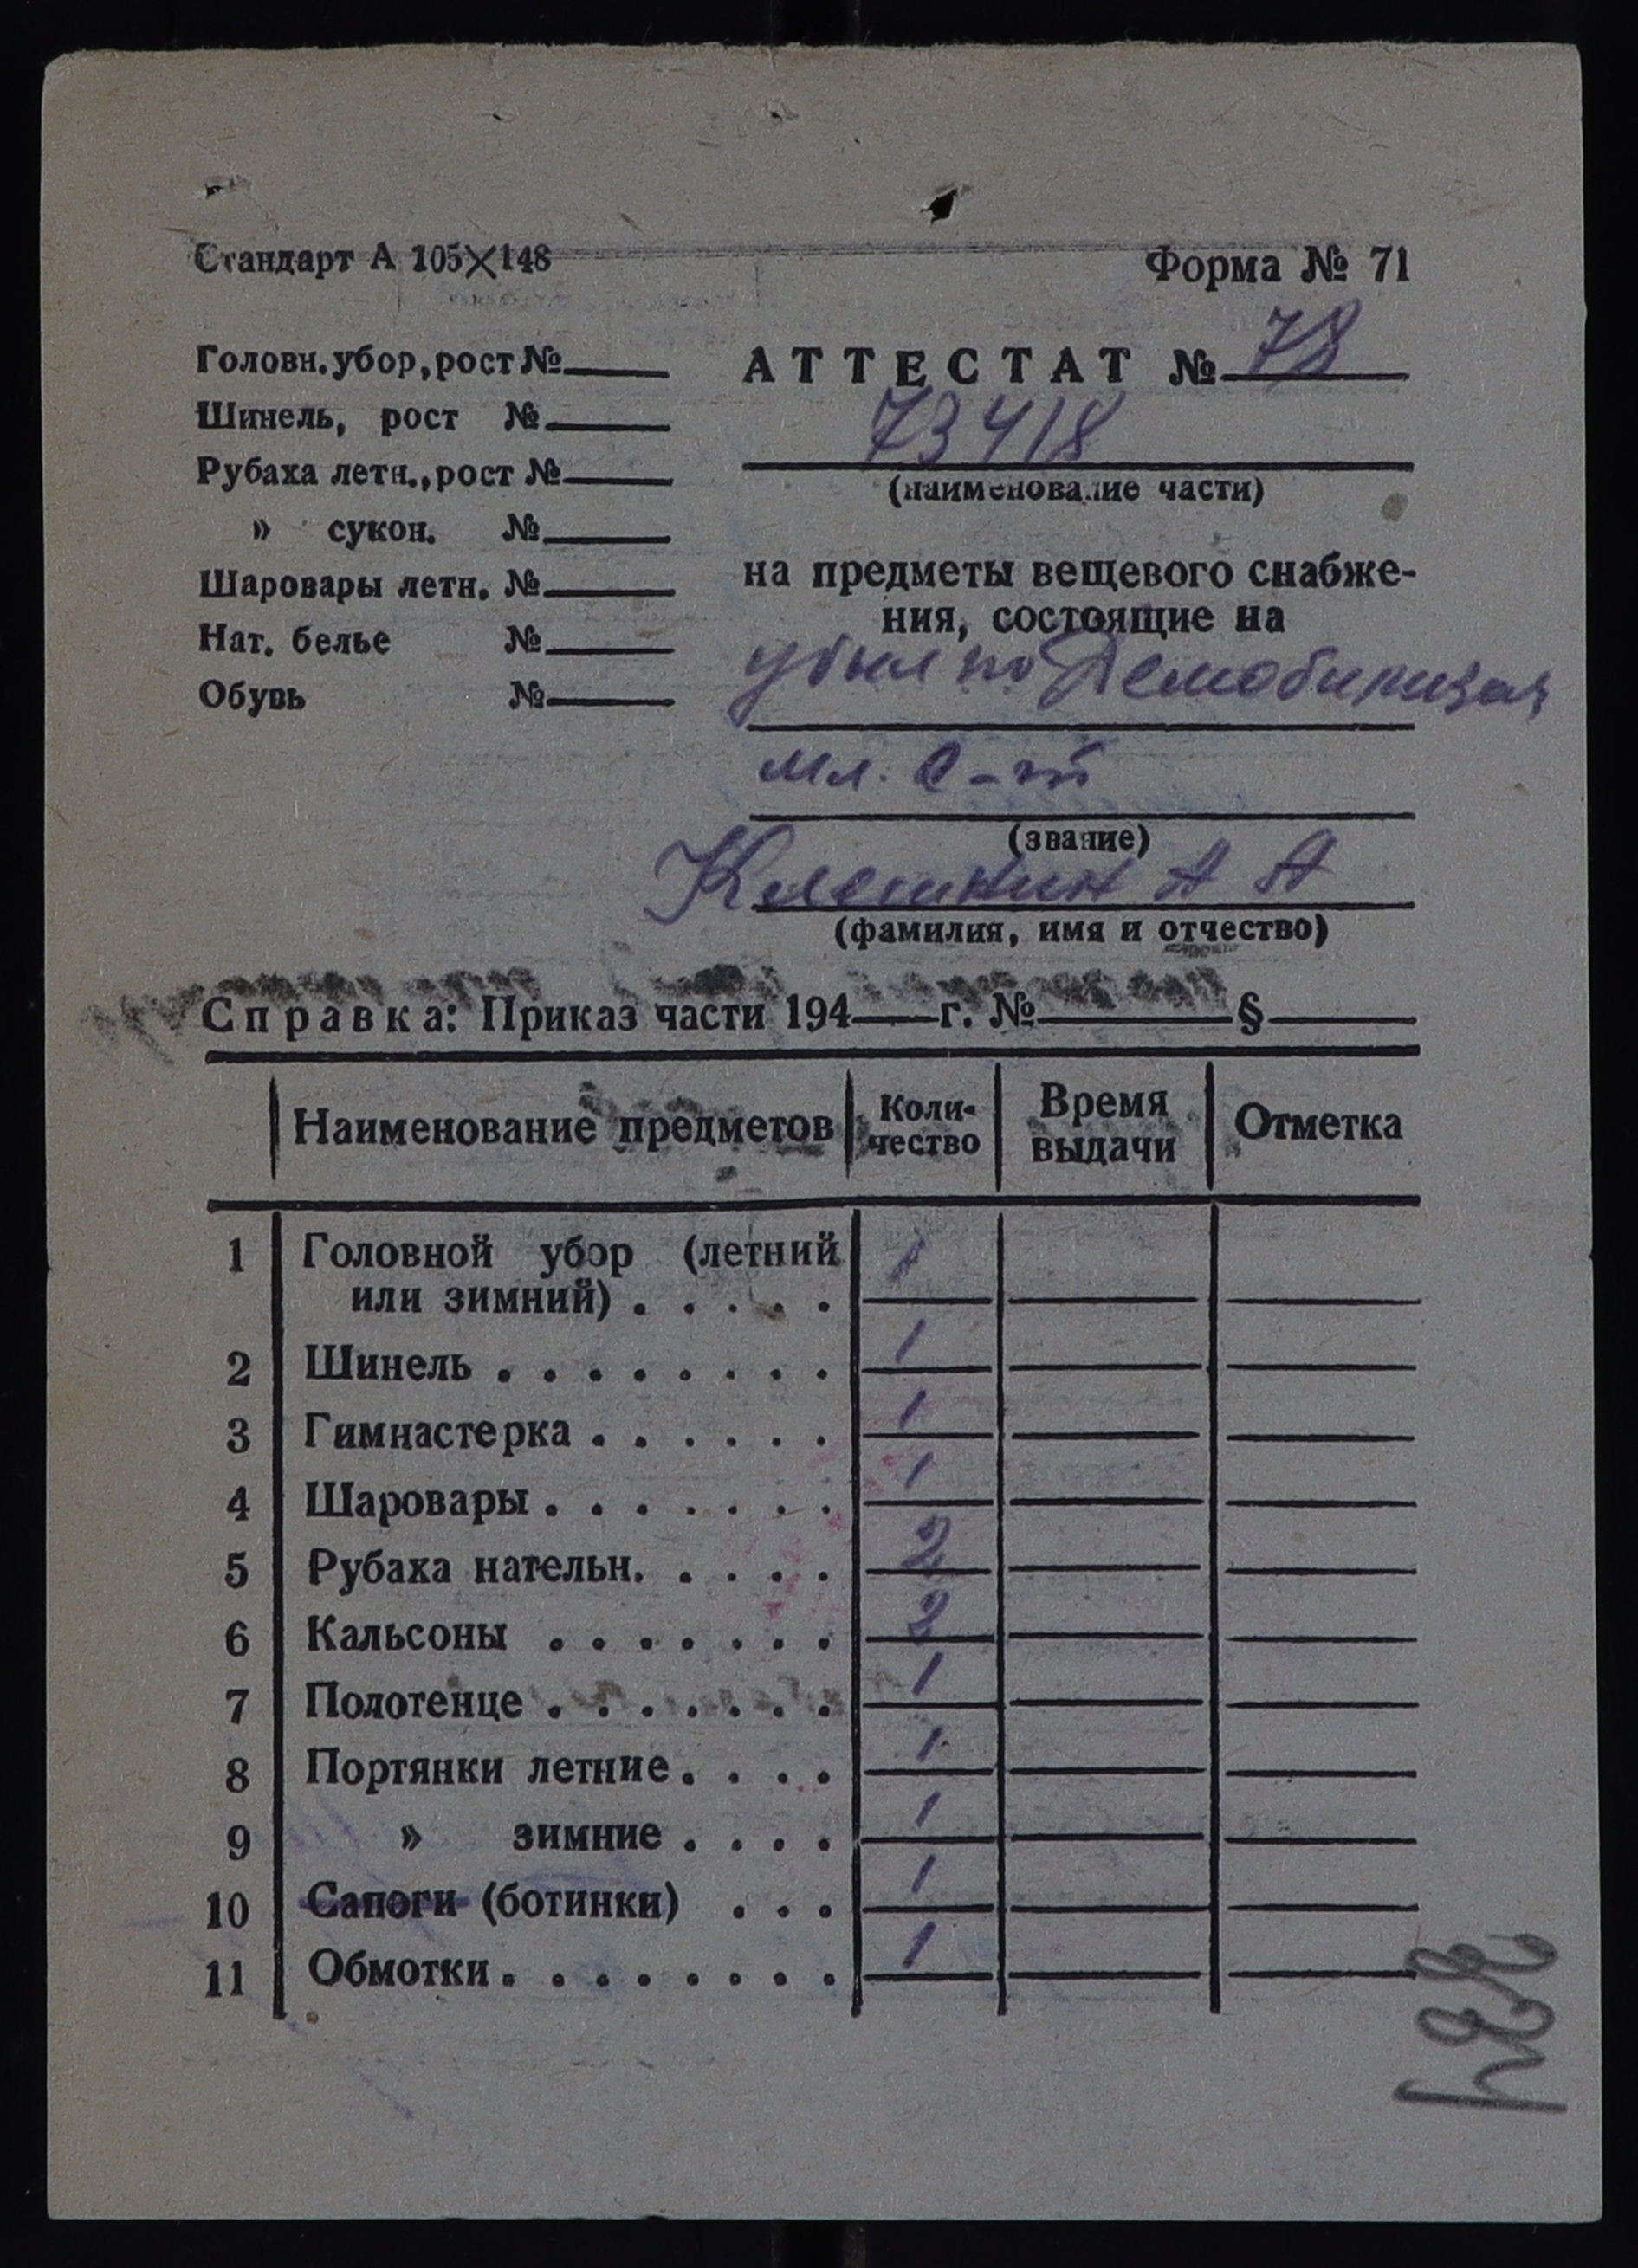 Стандарт А 105×148
Форма № 71
Головн. убор, рост №
Шинель, рост №
Рубаха летн., рост №
» сукон. №
Шаровары летн. №
Нат. белье №
Обувь №
АТТЕСТАТ № 78
73418
(наименование части)
на предметы вещевого снабже-
ния, состоящие на
убыл по Демобилизац
мл. с-т
(звание)
Клешнин А А
(фамилия, имя и отчество)
Справка: Приказ части 194 г. № §
Наименование предметов Коли-чество Время выдачи Отметка
1 Головной убор (летний
или зимний) . . . . . 1
2 Шинель . . . . . . . . 1
3 Гимнастерка . . . . . . 1
4 Шаровары . . . . . . . 1
5 Рубаха нательн. . . . . 2
6 Кальсоны . . . . . . . 2
7 Полотенце . . . . . . . 1
8 Портянки летние . . . . 1
9 » зимние . . . . 1
10 Сапоги (ботинки) . . . 1
11 Обмотки . . . . . . . . 1